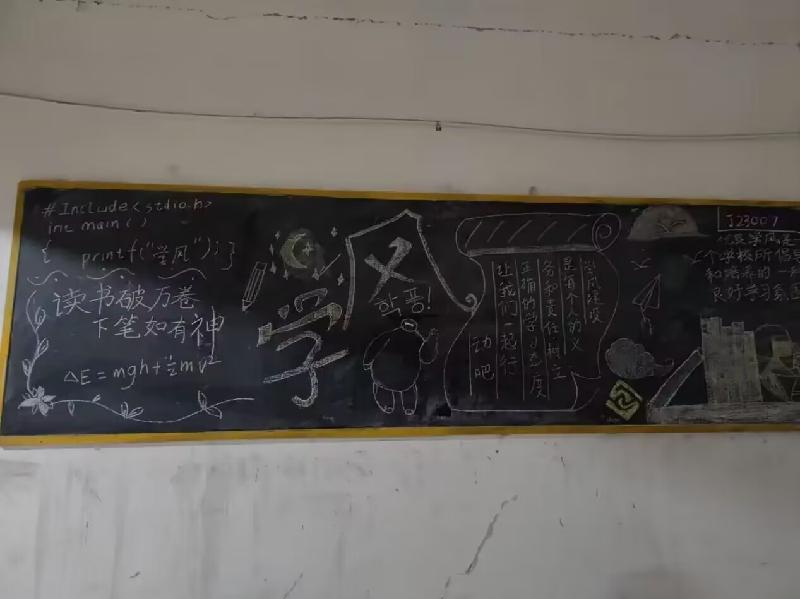 #Include<stdio.h>
int main()
{ printf("学风");}
读书破万卷
下笔如有神
△E=mgh+½mv²
学风
학풍!
学风建设
是每个人的义
务和责任树立
正确的学习态度
让我们一起行
动吧
J23007
优良学风是
个学校所倡
和培养的一种
良好学习氛围